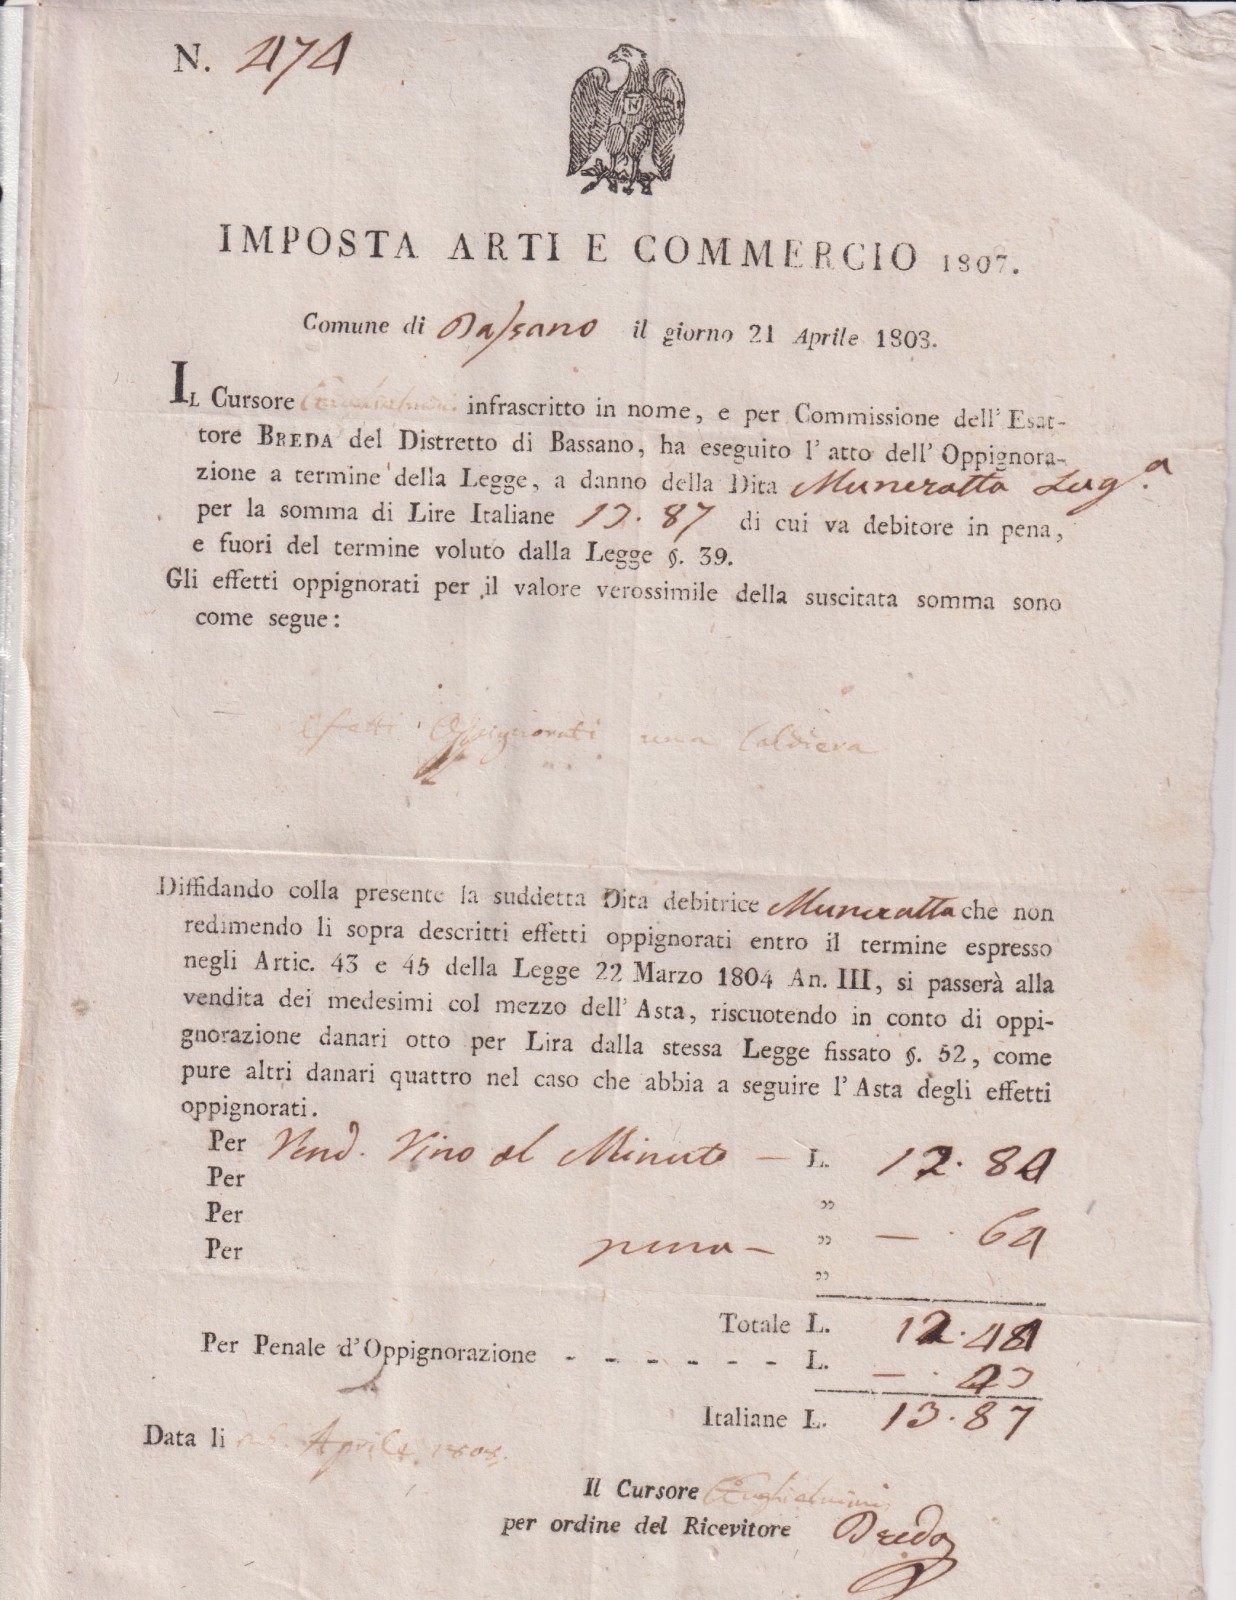 N. 474
N
IMPOSTA ARTI E COMMERCIO 1807.
Comune di Bassano il giorno 21 Aprile 1808.
IL Cursore infrascritto in nome, e per Commissione dell' Esat-
tore BREDA del Distretto di Bassano, ha eseguito l' atto dell' Oppignora-
zione a termine della Legge, a danno della Dita Muneratta Lug.a
per la somma di Lire Italiane 13.87 di cui va debitore in pena,
e fuori del termine voluto dalla Legge §. 39.
Gli effetti oppignorati per il valore verossimile della suscitata somma sono
come segue:
Efetti Oppignorati una Caldiera
Diffidando colla presente la suddetta Dita debitrice Muneratta che non
redimendo li sopra descritti effetti oppignorati entro il termine espresso
negli Artic. 43 e 45 della Legge 22 Marzo 1804 An. III, si passerà alla
vendita dei medesimi col mezzo dell' Asta, riscuotendo in conto di oppi-
gnorazione danari otto per Lira dalla stessa Legge fissato §. 52, come
pure altri danari quattro nel caso che abbia a seguire l' Asta degli effetti
oppignorati.
Per Vend. Vino al Minuto — L. 12.84
Per "
Per pena — " — . 64
Per "
Totale L. 12.48
Per Penale d'Oppignorazione - - - - - - L. — . 43
Italiane L. 13.87
Data li Aprile 1808.
Il Cursore Guglielmini
per ordine del Ricevitore Breda